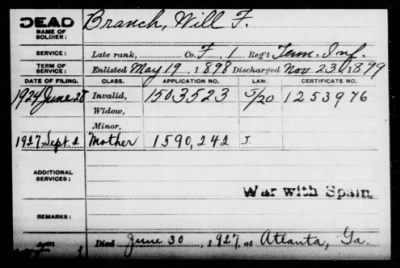 DEAD
NAME OF SOLDIER: Branch, Will F.
SERVICE: Late rank, Co. F, 1 Reg't Tenn. Inf.
TERM OF SERVICE: Enlisted May 19, 1898 Discharged Nov 23, 1899
DATE OF FILING. CLASS. APPLICATION NO. LAW. CERTIFICATE NO.
1924 June 28 Invalid, 1503523 5/20 1253976
Widow,
Minor,
1927 Sept 2 Mother 1590,242 J.
ADDITIONAL SERVICES:
War with Spain
REMARKS:
Died June 30, 1927, at Atlanta, Ga.